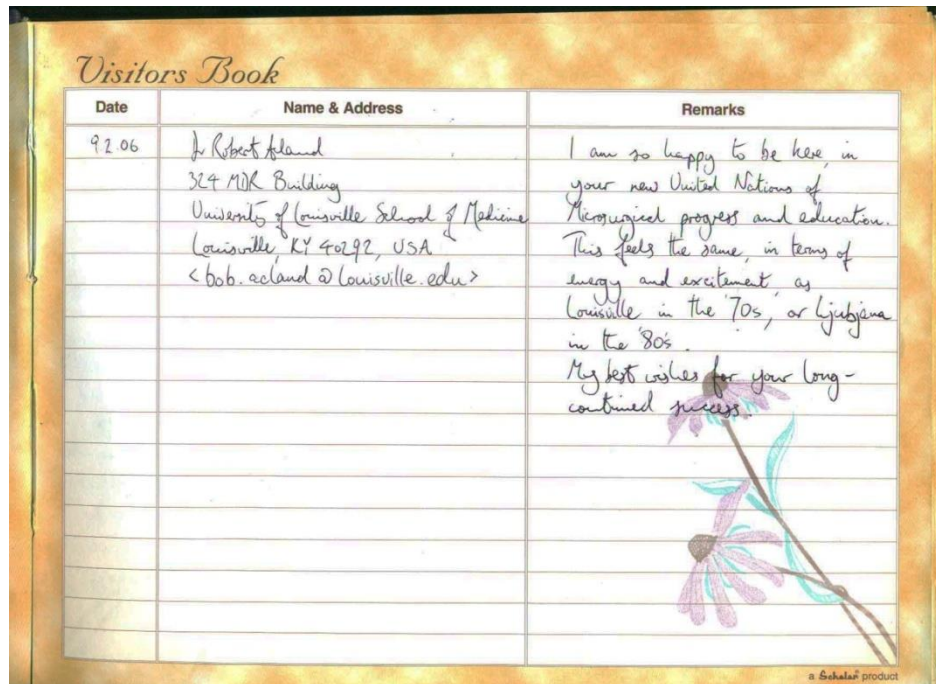 Visitors Book
Date Name & Address Remarks
9.2.06
Dr Robert Acland
324 MDR Building
University of Louisville School of Medicine
Louisville, KY 40292, USA
<bob.acland@louisville.edu>
I am so happy to be here, in
your new United Nations of
Microsurgical progress and education.
This feels the same, in terms of
energy and excitement, as
Louisville in the '70s, or Ljubjana
in the '80s.
My best wishes for your long-
continued success.
a Scholar product